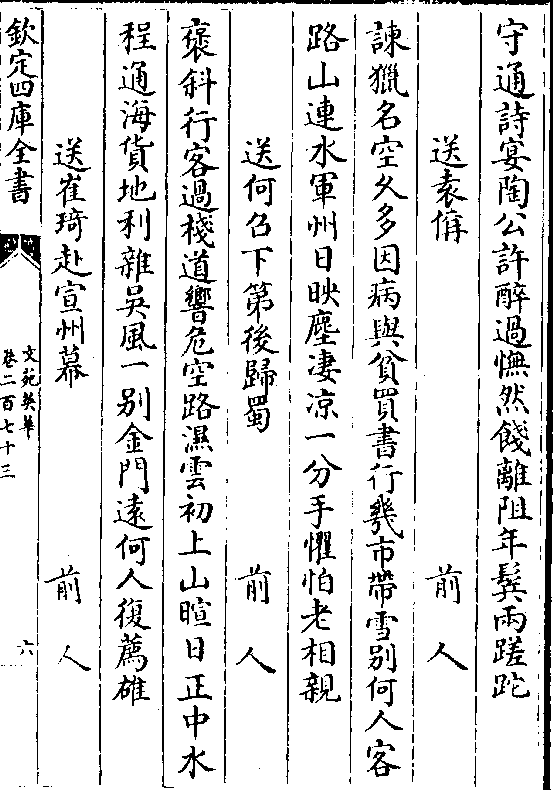 守通詩宴陶公許醉過憮然餞離阻年鬂兩蹉跎
送袁偁 前人
諫獵名空久多因病與貧買書行幾市帶雪别何人客
路山連水軍州日映塵凄凉一分手懼怕老相親
送何召下第後歸蜀 前人
褒斜行客過棧道響危空路濕雲初上山暄日正中水
程通海貨地利雜吳風一别金門逺何人復薦雄
送崔琦赴宣州幕 前人
欽定四庫全書
文苑英華
卷二百七十三
六